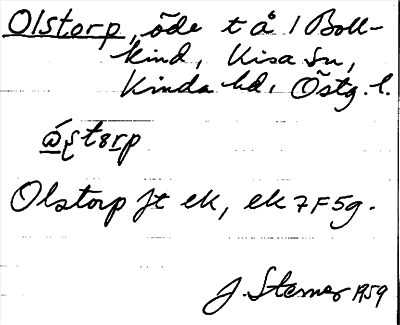 Olstorp, öde t å 1 Boll-
kind, Kisa sn,
Kinda hd, Östg. l.
Olstorp jt ek, ek 7F5g.
J. Sterner 1959